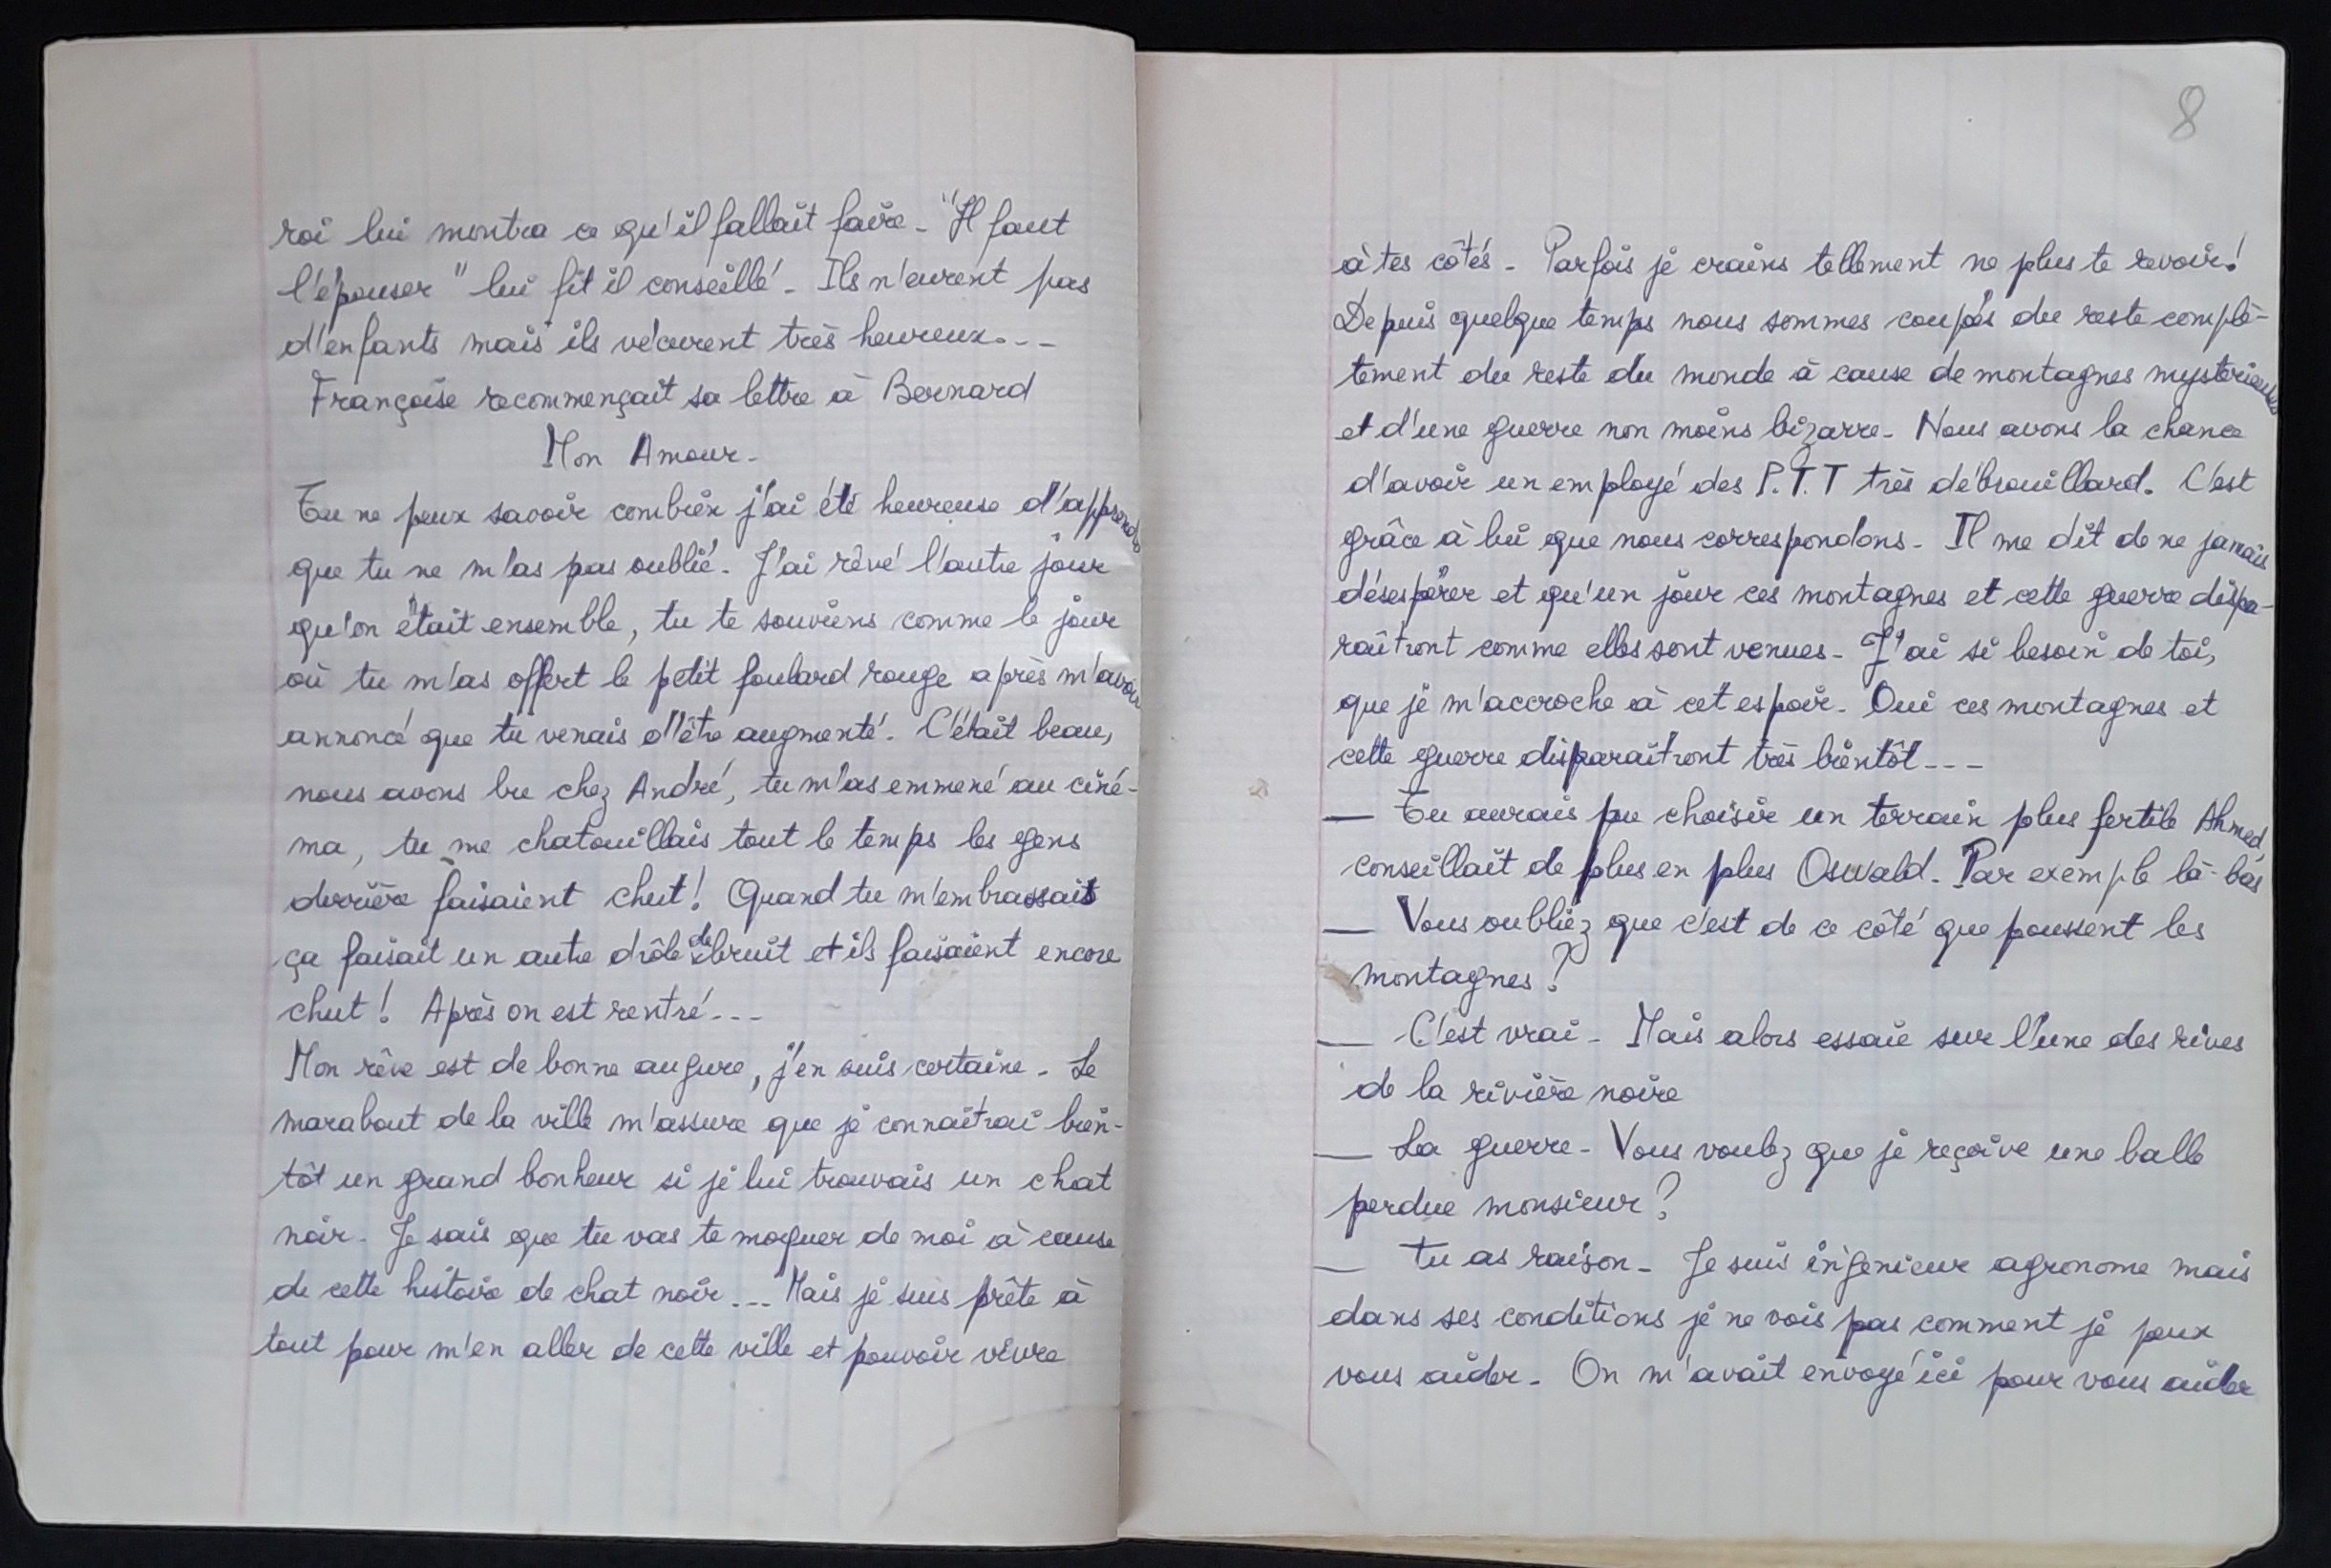 roi lui montra ce qu'il fallait faire - "Il faut
l'épouser" lui fit il conseillé - Ils n'eurent pas
d'enfants mais ils vécurent très heureux...
Françoise recommençait sa lettre à Bernard
Mon Amour -
Tu ne peux savoir combien j'ai été heureuse d'apprendre
que tu ne m'as pas oublié - J'ai rêvé l'autre jour
qu'on était ensemble, tu te souviens comme le jour
où tu m'as offert le petit foulard rouge après m'avoir
annoncé que tu venais d'être augmenté - C'était beau,
nous avons bu chez André, tu m'as emmené au ciné-
ma, tu me chatouillais tout le temps les gens
derrière faisaient chut! Quand tu m'embrassais
ça faisait un autre drôle de bruit et ils faisaient encore
chut! Après on est rentré...
Mon rêve est de bonne augure, j'en suis certaine - Le
marabout de la ville m'assure que je connaîtrai bien-
tôt un grand bonheur si je lui trouvais un chat
noir - Je sais que tu vas te moquer de moi à cause
de cette histoire de chat noir ... Mais je suis prête à
tout pour m'en aller de cette ville et pouvoir vivre
8
à tes côtés - Parfois je crains tellement ne plus te revoir!
Depuis quelque temps nous sommes coupés du reste complè-
tement du reste du monde à cause de montagnes mystérieuses
et d'une guerre non moins bizarre - Nous avons la chance
d'avoir un employé des P.T.T très débrouillard. C'est
grâce à lui que nous correspondons - Il me dit de ne jamais
désespérer et qu'un jour ces montagnes et cette guerre dispa-
raîtront comme elles sont venues - J'ai si besoin de toi,
que je m'accroche à cet espoir - Oui ces montagnes et
cette guerre disparaîtront très bientôt ...
— Tu aurais pu choisir un terrain plus fertile Ahmed,
conseillait de plus en plus Oswald - Par exemple là-bas
— Vous oubliez que c'est de ce côté que poussent les
montagnes?
— C'est vrai - Mais alors essaie sur l'une des rives
de la rivière noire
— La guerre - Vous voulez que je reçoive une balle
perdue monsieur?
— Tu as raison - Je suis ingénieur agronome mais
dans ses conditions je ne vois pas comment je peux
vous aider - On m'avait envoyé ici pour vous aider